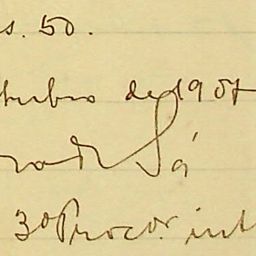 s. 50.
tubro de 1907
rade Sá
3º Procor. int